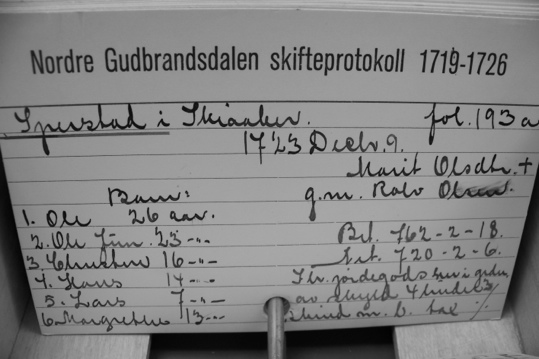 Nordre Gudbrandsdalen skifteprotokoll 1719-1726
Sperstad i Skiaaker. fol. 193 a
1723 Decbr. 9.
Marit Olsdtr. +
Barn: g.m. Rolv Olsen.
1. Ole 26 aar.
2. Ole Jun. 23 -"- Brt. 762-2-18.
3. Christine 16 -"- Nt. 720-2-6.
4. Hans 14 -"- jordegods
5. Lars 7 -"- av skyld 4 huder 3
6. Margrethe 13 -"- m. b.